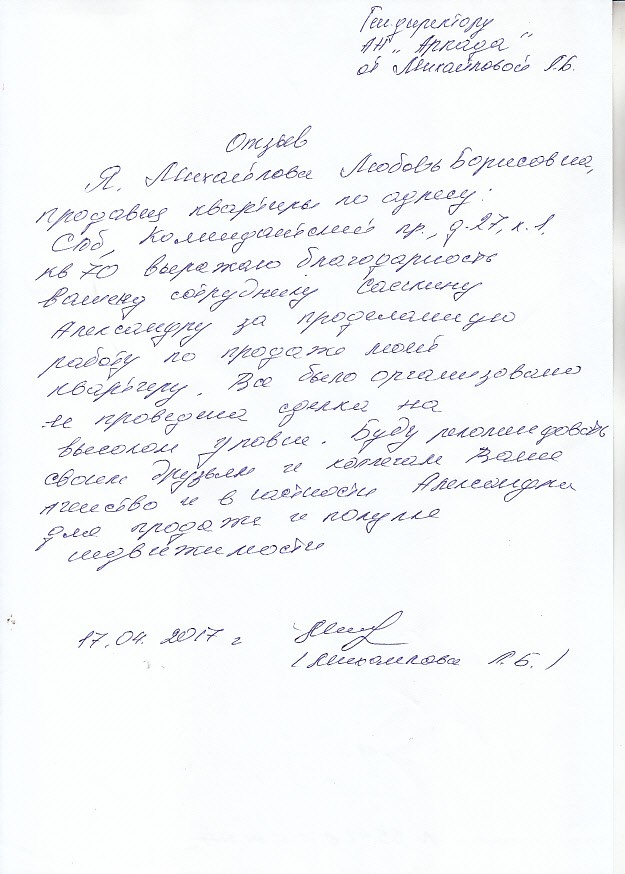 Гендиректору
АН "Аркада"
от Михайловой Л.Б.
Отзыв
Я, Михайлова Любовь Борисовна,
продавец квартиры по адресу:
Спб, Комендантский пр., д.27, к.1,
кв 70 выражаю благодарность
вашему сотруднику
Александру за проделанную
работу по продаже моей
квартиры. Все было организовано
и проведена сделка на
высоком уровне. Буду рекомендовать
своим друзьям и коллегам Ваше
агенство и в частности Александра
для продажи и покупке
недвижимости
17.04. 2017 г
(Михайлова Л.Б.)